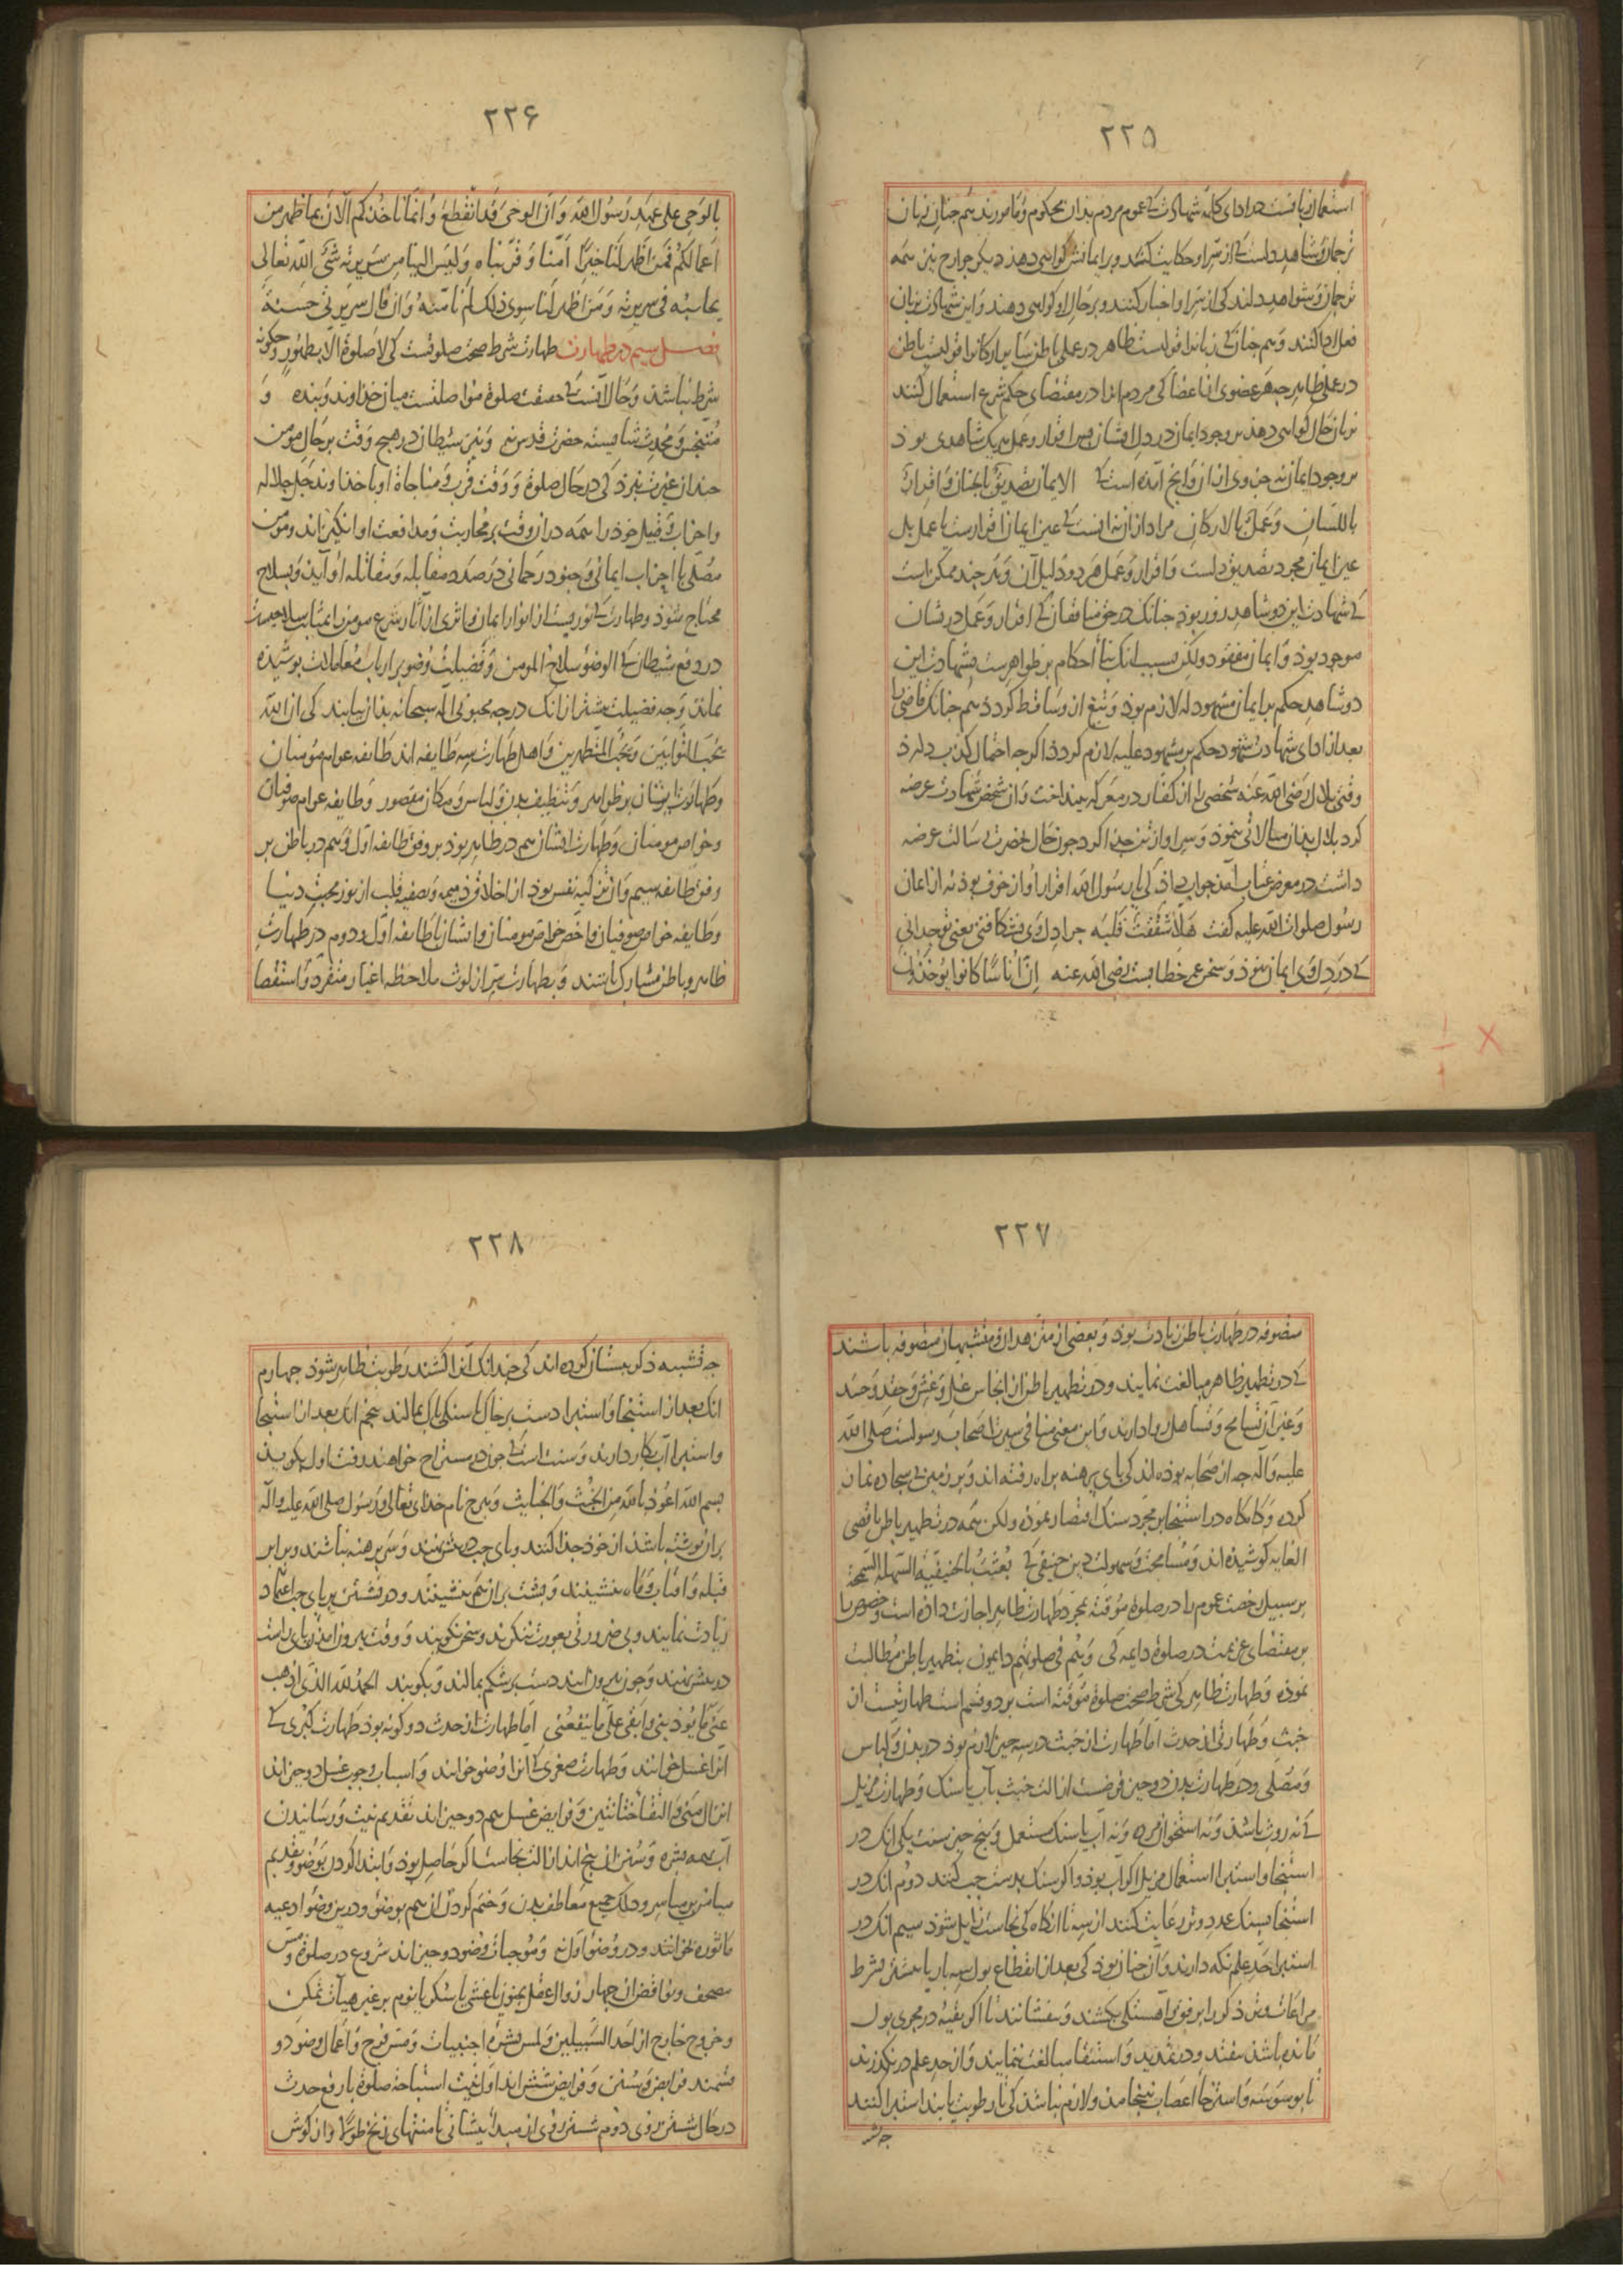 ٢٢٥
استعمال زبانست در ادای کلمهٔ شهادت کے عموم مردم بدان محکوم و مامورند هم جنان زبان
ترجمان و شاهد دلست کے از سر او حکایت کند و بر ایمانش کواهی دهذ دیکر جوارح نیز همه
ترجمان و شواهد دلند کی از سر او اخبار کنند و بر حال او کواهی دهند و این شهادت بزبان
فعل ادا کنند و هم جنان کے زبانرا قولیست ظاهر در عملی باطن سایر ارکانرا قولیست باطن
در عملی ظاهر جه هر عضوی از اعضا کی مردم انرا در مقتضای حکم شرع استعمال کنند
بزبان حال کواهی دهذ بر وجود ایمان در دل ایشان بس اقرار و عمل هر یک شاهدی بوذ
بر وجود ایمان نه جزوی از ان و انج آمده است کے الایمان تصدیق بالجنان و اقرار
باللسان و عمل بالارکان مراد از ان نه انست کے عین ایمان اقرارست یا عمل بل
عین ایمان مجرد تصدیق دلست و اقرار و عمل هر دو دلیل آن و هر جند ممکن است
کے شهادت این دو شاهد زور بوذ جنانک در حق منافقان کے اقرار و عمل در شان
موجود بوذ و ایمان مفقود ولکن بسبب انک بناء احکام بر ظواهرست بشهادت این
دو شاهد حکم بر ایمان مشهود له لازم بوذ و تبع ان ساقط کردذ هم جنانک قاضی را
بعد از ادای شهادت شهود حکم بر مشهود علیه لازم کردذ اکر جه احتمال کذب دارذ
وقتی بلال رضی الله عنه شخصی را از کفار در معرکه بینداخت و ان شخص شهادت عرضه
کرد بلال بذان مبالاتی ننموذ و سر او از تن جدا کرد جون حال بحضرت رسالت عرضه
داشت در معرض عتاب آمذ جواب داذ کی یا رسول الله اقرار او از خوف بوذ نه از اذعان
رسول صلوات الله علیه کفت هلا شققت قلبه جرا دل وی نشکافتی یعنی تو جه دانی
کے در دل وی ایمان نبوذ و سخن عمر خطابست رضی الله عنه ان اناسا کانوا یوخذون
٢٢۶
بالوحی علی عهد رسول الله و ان الوحی قد انقطع و انما ناخذکم الآن بما ظهر من
اعمالکم فمن اظهر لنا خیرا امناه و قربناه و لیس الینا من سریرته شئ الله تعالی
یحاسبه فی سریرته و من اظهر لنا سوی ذلک لم نامنه و ان قال سریرتی حسنة
فصل سیم در طهارت طهارت شرط صحت صلوتست کی لا صلوة الا بطهور و جکونه
شرط نباشذ و حال آنست کے حقیقت صلوة مواصلتست میان خذاوند و بنده و
متنجس و محدث شایسته حضرت قدس نی و نیز شیطان در هیچ وقت بر حال مومن
جندان غیرت نبرذ کی در حال صلوة و وقت قرب و مناجاة او با خذاوند جل جلاله
و احزاب و قبیل خوذ را همه در ان وقت بر محاربت و مدافعت او انکیزاند و مومن
مصلی با احزاب ایمانی و جنود رحمانی در صدد مقابله و مقاتله او آید و بسلاح
محتاج شوذ و طهارت کے نوریست از انوار ایمان و اثری از آثار شرع مومن را بمثابت سلاحیست
در دفع شیطان کے الوضو سلاح المومن و فضیلت وضو بر ارباب معاملات بوشیذه
نماند و جه فضیلت بیشتر از انک درجه محبوبی اله سبحانه بذان بیابند کی ان الله
یحب التوابین و یحب المتطهرین و اهل طهارت سه طایفه اند طایفه عوام مومنان
و طهارت ایشان بر ظواهر و تنظیف بدن و لباس و مکان مقصور و طایفه عوام صوفیان
و خواص مومنان و طهارت ایشان هم در ظاهر بوذ بر وفق طایفه اول و هم در باطن بر
وفق طایفه سیم و ان تزکیه نفس بوذ از اخلاق ذمیمه و تصفیه قلب از لوث محبت دنیا
و طایفه خواص صوفیان و اخص خواص مومنان و ایشان با طایفه اول و دوم در طهارت
ظاهر و باطن مشارک باشند و بطهارت سر از لوث ملاحظه اغیار متفرد و استقصا
٢٢٧
متصوفه در طهارت باطن زیادت بوذ و بعضی از متزهدان و متشبهان متصوفه باشند
کے در تطهیر ظاهر مبالغت نمایند و در تطهیر باطن از انجاس غل و غش و حقد و حسد
و غیر آن تسامح و تساهل روا دارند و این معنی منافی سیرت اصحاب رسولست صلی الله
علیه و آله جه از صحابه بوذه اند کی بای برهنه براه رفته اند و بر زمین بی سجاده نماز
کرده و کاه کاه در استنجا بر مجرد سنک اقتصار نموذه ولکن همه در تطهیر باطن باقصی
الغایه کوشیذه اند و مسامحت و سهولت دین حنیفی کے بعثت بالحنیفیة السهلة السمحة
بر سبیل رخصت عموم را در صلوة موقته بمجرد طهارت ظاهر اجازت داذه است و خصوص را
بر مقتضای عزیمت در صلوة دایمه کی و هم فی صلوتهم دایمون بتطهیر باطن مطالبت
نموذه و طهارت ظاهر کی شرط صحت صلوة موقته است بر دو قسم است طهارتست از
خبث و طهارتی از حدث اما طهارت از خبث در سه جیز لازم بوذ در بدن و لباس
و مصلی و در طهارت بدن دو جیز فرضست ازالت خبث بآب یا سنک و طهارت مزیل
کے نه روث باشذ و نه استخوان مرده و نه آب یا سنک مستعمل و بنج جیز سنت یکی انک در
استنجا و استبرا استعمال مزیل اکر آب بوذ و اکر سنک بدست جب کنند دوم انک در
استنجا بسنک عدد وتر رعایت کنند از سه تا انکاه کی نجاست زایل شوذ سیم انک در
استبرا حد علم نکه دارند و آن جنان بوذ کی بعد از انقطاع بول سه بار یا بیشتر بشرط
مراعات وتر ذکر را برفق و آهستکی بکشند و بیفشانند تا اکر بقیه در مجری بول
مانده باشذ بیفتد و در تمدید و استنقا مبالغت ننمایند و از حد علم در نکذرند
تا بوسوسه و استرخاء اعصاب نینجامد و لازم نباشذ کی تا رطوبت یابند استبرا کنند
جه تشبیه
٢٢٨
جه تشبیه ذکر ببستان کرده اند کی جندانک آنرا کشند رطوبت ظاهر شوذ جهارم
انک بعد از استنجا و استبرا دست بر خاک یا سنکی باک بمالند بنجم انک بعد از استنجا
و استبرا آب بکار دارند و سنت است کے جون در مستراح خواهند رفت اول بکویند
بسم الله اعوذ بالله من الخبث و الخبایث و هرج نام خذای تعالی و رسول صلی الله علیه و آله
بران نوشته باشذ از خوذ جذا کنند و بای جب در بیش نهند و سر برهنه نباشند و برابر
قبله و آفتاب و ماه ننشینند و بشت بران هم ننشینند و در نشستن بر بای جب اعتماد
زیادت نمایند و بی ضرورتی بعورت ننکرند و سخن نکویند و وقت بیرون امذن بای راست
در بیش نهند و جون بیرون ایند دست بر شکم بمالند و بکویند الحمد لله الذی اذهب
عنی ما یوذینی و ابقی علی ما ینفعنی اما طهارت از حدث دو کونه بوذ طهارت کبری کے
انرا غسل خوانند و طهارت صغری کے انرا وضو خوانند و اسباب وجوب غسل دو جیز اند
انزال منی و التقاء ختانین و فرایض غسل هم دو جیز اند تقدیم نیت و رسانیدن
آب بهمه بشره و سنن ان بنج اند ازالت نجاست اکر حاصل بوذ و ابتدا کردن بوضو و تقدیم
میامن بر میاسر و دلک جمیع معاطف بدن و ختم کردن ان هم بوضو و در این وضو ادعیه
ماثوره بخوانند و در وضو اول نه و موجبات وضو دو جیز اند شروع در صلوة و مس
مصحف و نواقض ان جهار زوال عقل بجنون یا غشی یا سکر یا نوم بر غیر هیآت تمکن
و خروج خارج از احد السبیلین و لمس بشره اجنبیات و مس فرج و اعمال وضو دو
قسمند فرایض و سنن و فرایض شش اند اول نیت استباحت صلوة یا رفع حدث
در حال شستن روی دوم شستن روی از مبدا بیشانی تا منتهای زنخ طولا و از کوش